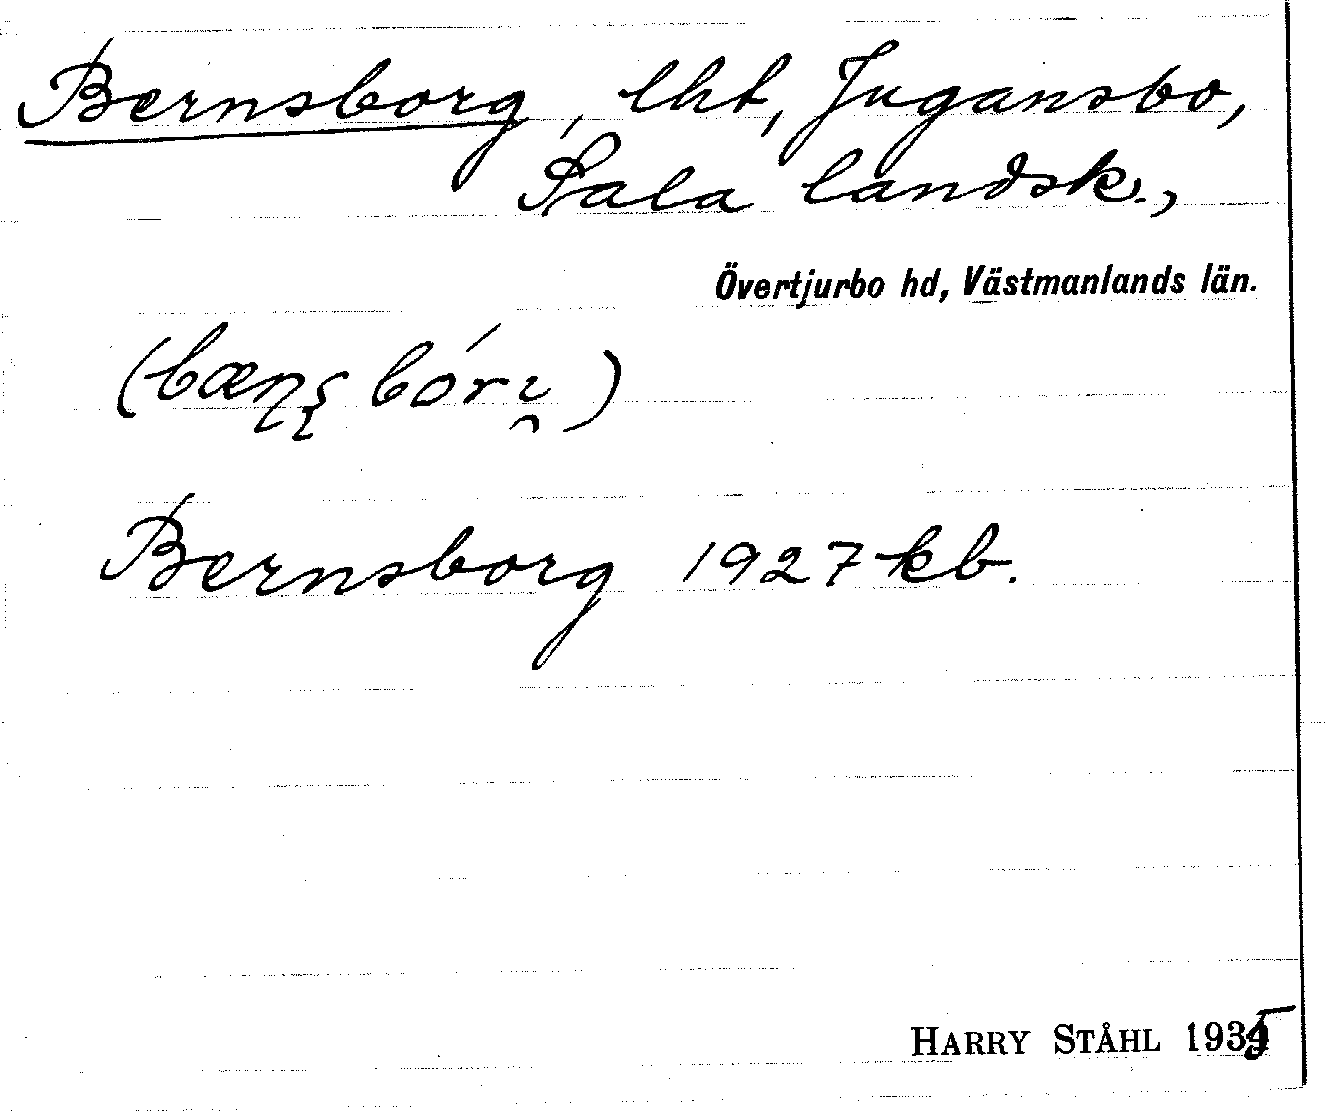 Bernsborg, lht, Jugansbo,
Sala landsk.,
Övertjurbo hd, Västmanlands län.
(bæɳʂbórɩ̯)
Bernsborg 1927 kb.
HARRY STÅHL 1935